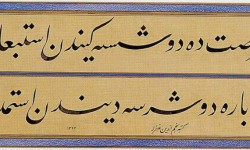 رصت ده دوشسه کیندن استبعا
باره دوشرسه دیندن استمد